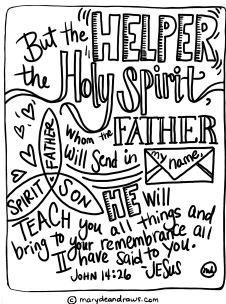 But the "HELPER,
the Holy Spirit,
Whom the FATHER
will send in my name,
FATHER
SPIRIT SON
HE will
TEACH you all things and
bring to your remembrance all
I have said to you."
JOHN 14:26 -JESUS
md
© marydeandraws.com